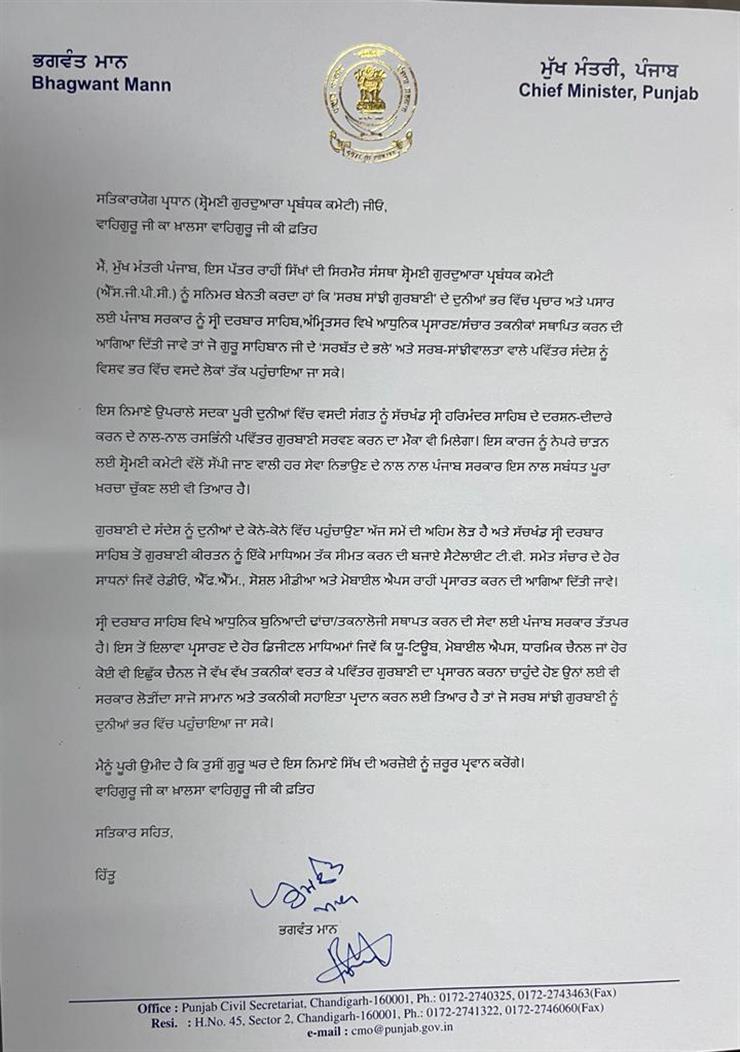 ਭਗਵੰਤ ਮਾਨ
Bhagwant Mann
ਮੁੱਖ ਮੰਤਰੀ, ਪੰਜਾਬ
Chief Minister, Punjab
ਸਤਿਕਾਰਯੋਗ ਪ੍ਰਧਾਨ (ਸ਼੍ਰੋਮਣੀ ਗੁਰਦੁਆਰਾ ਪ੍ਰਬੰਧਕ ਕਮੇਟੀ) ਜੀਓ,
ਵਾਹਿਗੁਰੂ ਜੀ ਕਾ ਖ਼ਾਲਸਾ ਵਾਹਿਗੁਰੂ ਜੀ ਕੀ ਫ਼ਤਿਹ
ਮੈਂ, ਮੁੱਖ ਮੰਤਰੀ ਪੰਜਾਬ, ਇਸ ਪੱਤਰ ਰਾਹੀਂ ਸਿੱਖਾਂ ਦੀ ਸਿਰਮੌਰ ਸੰਸਥਾ ਸ਼੍ਰੋਮਣੀ ਗੁਰਦੁਆਰਾ ਪ੍ਰਬੰਧਕ ਕਮੇਟੀ
(ਐੱਸ.ਜੀ.ਪੀ.ਸੀ.) ਨੂੰ ਸਨਿਮਰ ਬੇਨਤੀ ਕਰਦਾ ਹਾਂ ਕਿ 'ਸਰਬ ਸਾਂਝੀ ਗੁਰਬਾਣੀ' ਦੇ ਦੁਨੀਆਂ ਭਰ ਵਿੱਚ ਪ੍ਰਚਾਰ ਅਤੇ ਪਸਾਰ
ਲਈ ਪੰਜਾਬ ਸਰਕਾਰ ਨੂੰ ਸ੍ਰੀ ਦਰਬਾਰ ਸਾਹਿਬ,ਅੰਮ੍ਰਿਤਸਰ ਵਿਖੇ ਆਧੁਨਿਕ ਪ੍ਰਸਾਰਣ/ਸੰਚਾਰ ਤਕਨੀਕਾਂ ਸਥਾਪਿਤ ਕਰਨ ਦੀ
ਆਗਿਆ ਦਿੱਤੀ ਜਾਵੇ ਤਾਂ ਜੋ ਗੁਰੂ ਸਾਹਿਬਾਨ ਜੀ ਦੇ 'ਸਰਬੱਤ ਦੇ ਭਲੇ' ਅਤੇ ਸਰਬ-ਸਾਂਝੀਵਾਲਤਾ ਵਾਲੇ ਪਵਿੱਤਰ ਸੰਦੇਸ਼ ਨੂੰ
ਵਿਸ਼ਵ ਭਰ ਵਿੱਚ ਵਸਦੇ ਲੋਕਾਂ ਤੱਕ ਪਹੁੰਚਾਇਆ ਜਾ ਸਕੇ।
ਇਸ ਨਿਮਾਣੇ ਉਪਰਾਲੇ ਸਦਕਾ ਪੂਰੀ ਦੁਨੀਆਂ ਵਿੱਚ ਵਸਦੀ ਸੰਗਤ ਨੂੰ ਸੱਚਖੰਡ ਸ੍ਰੀ ਹਰਿਮੰਦਰ ਸਾਹਿਬ ਦੇ ਦਰਸ਼ਨ-ਦੀਦਾਰੇ
ਕਰਨ ਦੇ ਨਾਲ-ਨਾਲ ਰਸਭਿੰਨੀ ਪਵਿੱਤਰ ਗੁਰਬਾਣੀ ਸਰਵਣ ਕਰਨ ਦਾ ਮੌਕਾ ਵੀ ਮਿਲੇਗਾ। ਇਸ ਕਾਰਜ ਨੂੰ ਨੇਪਰੇ ਚਾੜਨ
ਲਈ ਸ਼੍ਰੋਮਣੀ ਕਮੇਟੀ ਵੱਲੋਂ ਸੌਂਪੀ ਜਾਣ ਵਾਲੀ ਹਰ ਸੇਵਾ ਨਿਭਾਉਣ ਦੇ ਨਾਲ ਨਾਲ ਪੰਜਾਬ ਸਰਕਾਰ ਇਸ ਨਾਲ ਸਬੰਧਤ ਪੂਰਾ
ਖ਼ਰਚਾ ਚੁੱਕਣ ਲਈ ਵੀ ਤਿਆਰ ਹੈ।
ਗੁਰਬਾਣੀ ਦੇ ਸੰਦੇਸ਼ ਨੂੰ ਦੁਨੀਆਂ ਦੇ ਕੋਨੇ-ਕੋਨੇ ਵਿੱਚ ਪਹੁੰਚਾਉਣਾ ਅੱਜ ਸਮੇਂ ਦੀ ਅਹਿਮ ਲੋੜ ਹੈ ਅਤੇ ਸੱਚਖੰਡ ਸ੍ਰੀ ਦਰਬਾਰ
ਸਾਹਿਬ ਤੋਂ ਗੁਰਬਾਣੀ ਕੀਰਤਨ ਨੂੰ ਇੱਕੋ ਮਾਧਿਅਮ ਤੱਕ ਸੀਮਤ ਕਰਨ ਦੀ ਬਜਾਏ ਸੈਟੇਲਾਈਟ ਟੀ.ਵੀ. ਸਮੇਤ ਸੰਚਾਰ ਦੇ ਹੋਰ
ਸਾਧਨਾਂ ਜਿਵੇਂ ਰੇਡੀਓ, ਐੱਫ.ਐੱਮ., ਸੋਸ਼ਲ ਮੀਡੀਆ ਅਤੇ ਮੋਬਾਈਲ ਐਪਸ ਰਾਹੀਂ ਪ੍ਰਸਾਰਤ ਕਰਨ ਦੀ ਆਗਿਆ ਦਿੱਤੀ ਜਾਵੇ।
ਸ੍ਰੀ ਦਰਬਾਰ ਸਾਹਿਬ ਵਿਖੇ ਆਧੁਨਿਕ ਬੁਨਿਆਦੀ ਢਾਂਚਾ/ਤਕਨਾਲੋਜੀ ਸਥਾਪਤ ਕਰਨ ਦੀ ਸੇਵਾ ਲਈ ਪੰਜਾਬ ਸਰਕਾਰ ਤੱਤਪਰ
ਹੈ। ਇਸ ਤੋਂ ਇਲਾਵਾ ਪ੍ਰਸਾਰਣ ਦੇ ਹੋਰ ਡਿਜੀਟਲ ਮਾਧਿਅਮਾਂ ਜਿਵੇਂ ਕਿ ਯੂ-ਟਿਊਬ, ਮੋਬਾਈਲ ਐਪਸ, ਧਾਰਮਿਕ ਚੈਨਲ ਜਾਂ ਹੋਰ
ਕੋਈ ਵੀ ਇਛੁੱਕ ਚੈਨਲ ਜੋ ਵੱਖ ਵੱਖ ਤਕਨੀਕਾਂ ਵਰਤ ਕੇ ਪਵਿੱਤਰ ਗੁਰਬਾਣੀ ਦਾ ਪ੍ਰਸਾਰਨ ਕਰਨਾ ਚਾਹੁੰਦੇ ਹੋਣ ਉਨਾਂ ਲਈ ਵੀ
ਸਰਕਾਰ ਲੋੜੀਂਦਾ ਸਾਜੋ ਸਾਮਾਨ ਅਤੇ ਤਕਨੀਕੀ ਸਹਾਇਤਾ ਪ੍ਰਦਾਨ ਕਰਨ ਲਈ ਤਿਆਰ ਹੈ ਤਾਂ ਜੋ ਸਰਬ ਸਾਂਝੀ ਗੁਰਬਾਣੀ ਨੂੰ
ਦੁਨੀਆਂ ਭਰ ਵਿੱਚ ਪਹੁੰਚਾਇਆ ਜਾ ਸਕੇ।
ਮੈਨੂੰ ਪੂਰੀ ਉਮੀਦ ਹੈ ਕਿ ਤੁਸੀਂ ਗੁਰੂ ਘਰ ਦੇ ਇਸ ਨਿਮਾਣੇ ਸਿੱਖ ਦੀ ਅਰਜ਼ੋਈ ਨੂੰ ਜ਼ਰੂਰ ਪ੍ਰਵਾਨ ਕਰੋਂਗੇ।
ਵਾਹਿਗੁਰੂ ਜੀ ਕਾ ਖ਼ਾਲਸਾ ਵਾਹਿਗੁਰੂ ਜੀ ਕੀ ਫ਼ਤਿਹ
ਸਤਿਕਾਰ ਸਹਿਤ,
ਹਿੱਤੂ
ਭਗਵੰਤ ਮਾਨ
Office : Punjab Civil Secretariat, Chandigarh-160001, Ph.: 0172-2740325, 0172-2743463(Fax)
Resi. : H.No. 45, Sector 2, Chandigarh-160001, Ph.: 0172-2741322, 0172-2746060(Fax)
e-mail : cmo@punjab.gov.in